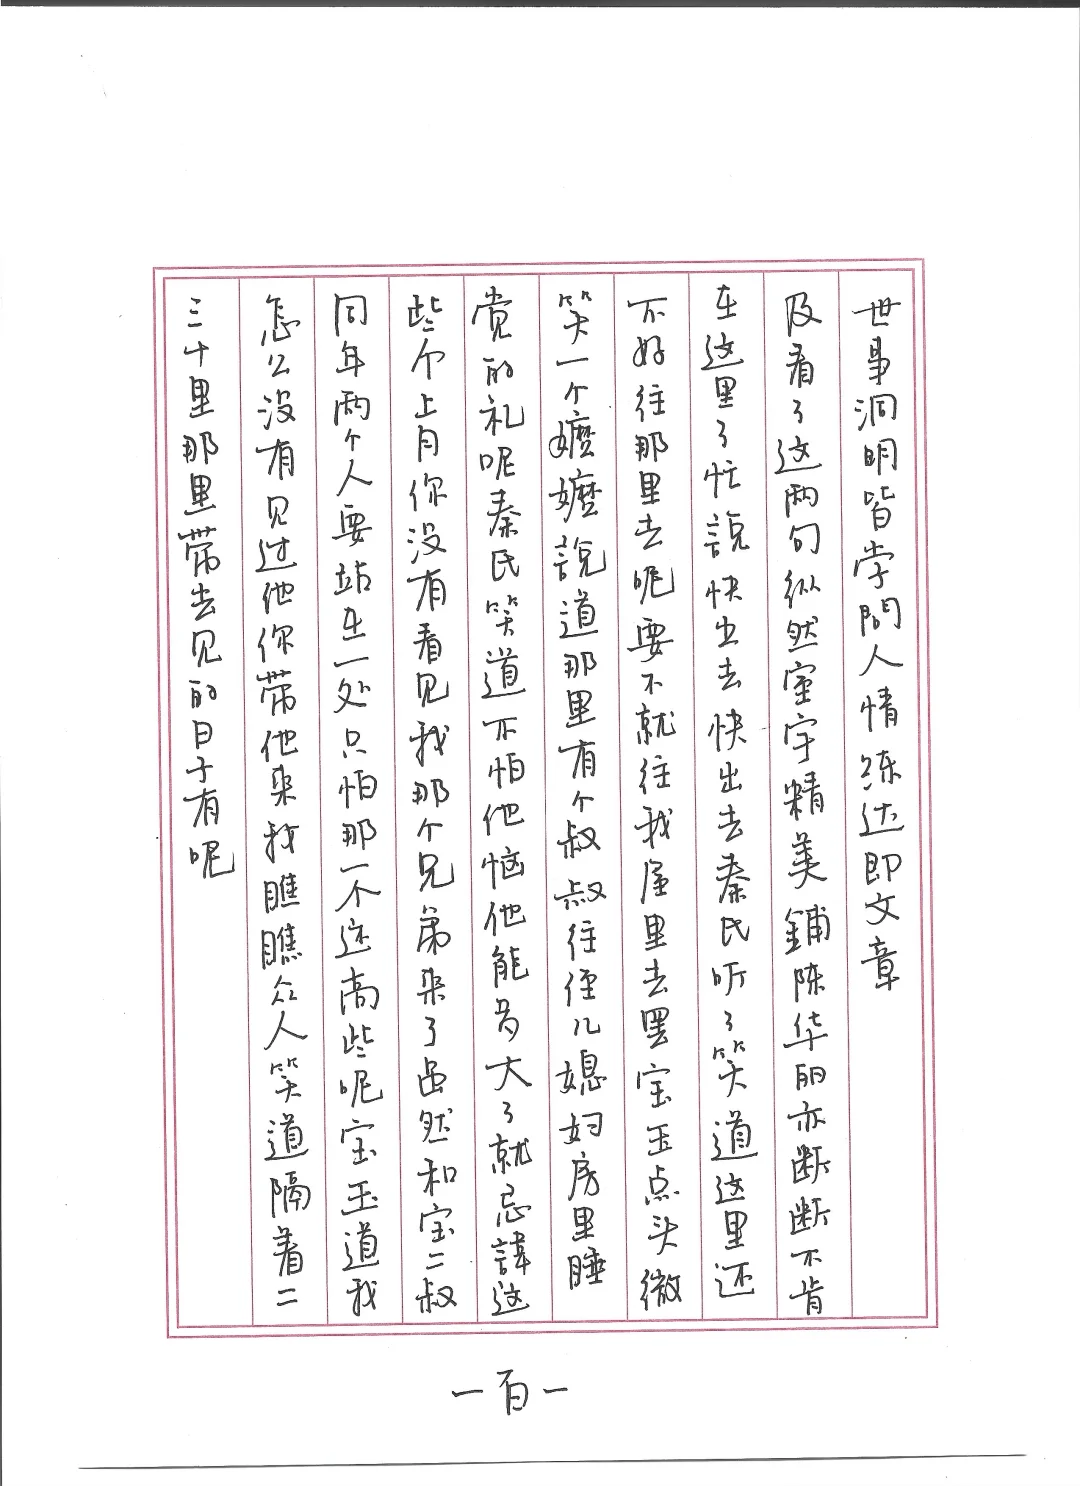 世事洞明皆学問人情练达即文章
及看了这两句纵然室宇精美鋪陈华丽亦断断不肯
在这里了忙說快出去快出去秦氏听了笑道这里还
不好往那里去呢要不就往我屋里去罢宝玉点头微
笑一个嬷嬷說道那里有个叔叔往侄儿媳妇房里睡
觉的礼呢秦氏笑道不怕他恼他能多大了就忌諱这
些个上月你没有看见我那个兄弟来了虽然和宝二叔
同年两个人要站在一处只怕那一个还高些呢宝玉道我
怎么没有见过他你带他来我瞧瞧众人笑道隔着二
三十里那里带去见的日子有呢
一百一